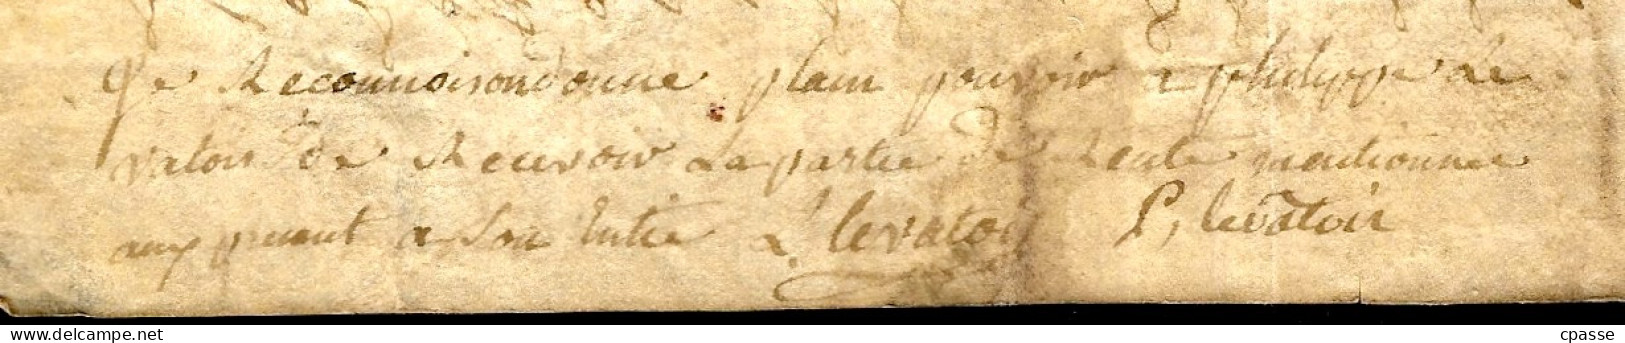 Je Reconnoison donne plain pouvoir a philippe Le
vatoir de Recevoir La partie de Rente mentionnee
aux present a son Entie L levatoir P, levatoir
www.delcampe.net
cpasse